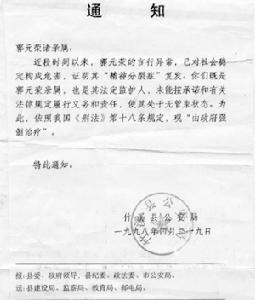 通 知
郭元荣诸亲属:
近段时间以来,郭元荣的言行异常,已对社会稳
定构成危害,证实其“精神分裂症”复发,你们既是
郭元荣亲属,也是其法定监护人,未能按承诺和有关
法律规定履行义务和责任,使其处于无管束状态。为
此,依照我国《刑法》第十八条规定,现“由政府强
制治疗”。
特此通知。
竹溪县公安局
一九九八年四月二十九日
报:县委、政府领导,县纪委、政法委、市公安局。
送:县建设局、监察局、教育局、邮电局。